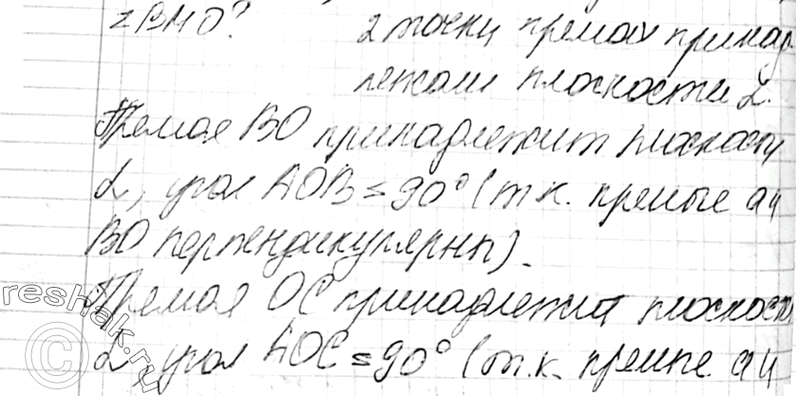 ∠BMO? 2 точки прямой принад-
лежат плоскости α.
Прямая BO принадлежит плоскости
α, угол AOB = 90° (т.к. прямые a и
BO перпендикулярны).
Прямая OC принадлежит плоскости
α, угол AOC = 90° (т.к. прямые a и
reshak.ru